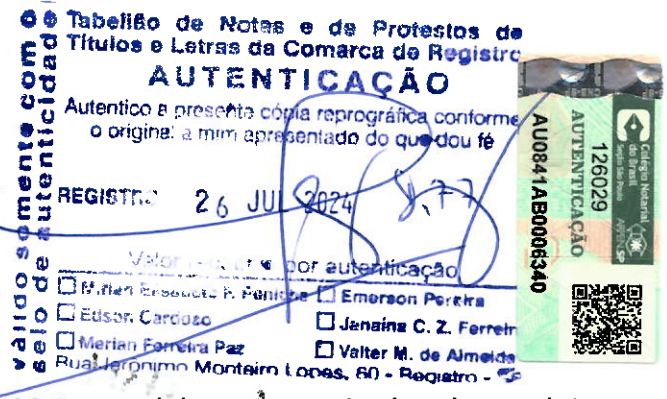 válido somente com o
selo de autenticidade
Tabelião de Notas e de Protestos de
Títulos e Letras da Comarca de Registro
AUTENTICAÇÃO
Autentico a presente cópia reprográfica conforme
o original a mim apresentado do que dou fé
REGISTRO 26 JUL 2024 8,77
Valor por autenticação
Mirian
Emerson Pereira
Edson Cardoso
Janaina C. Z. Ferreir
Merian Ferreira Paz
Valter M. de Almeida
Rua Jerônimo Monteiro Lopes, 60 - Registro - SP
Colégio Notarial
do Brasil
Seção São Paulo
126029
AUTENTICAÇÃO
AU0841AB0006340
SP